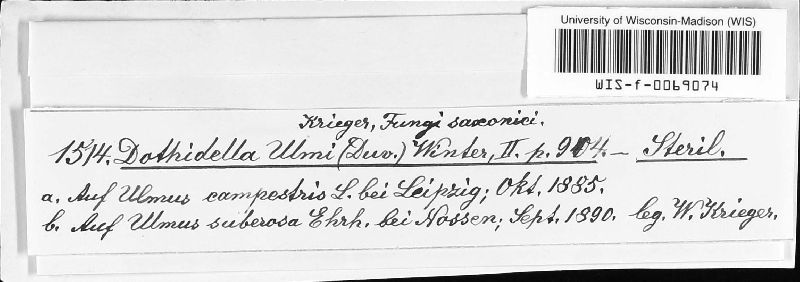 University of Wisconsin-Madison (WIS)
WIS-f-0069074
Krieger, Fungi saxonici.
1514. Dothidella Ulmi (Duv.) Winter, II. p. 904. — Steril.
a. Auf Ulmus campestris L. bei Leipzig; Okt. 1885.
b. Auf Ulmus suberosa Ehrh. bei Nossen; Sept. 1890. leg. W. Krieger.